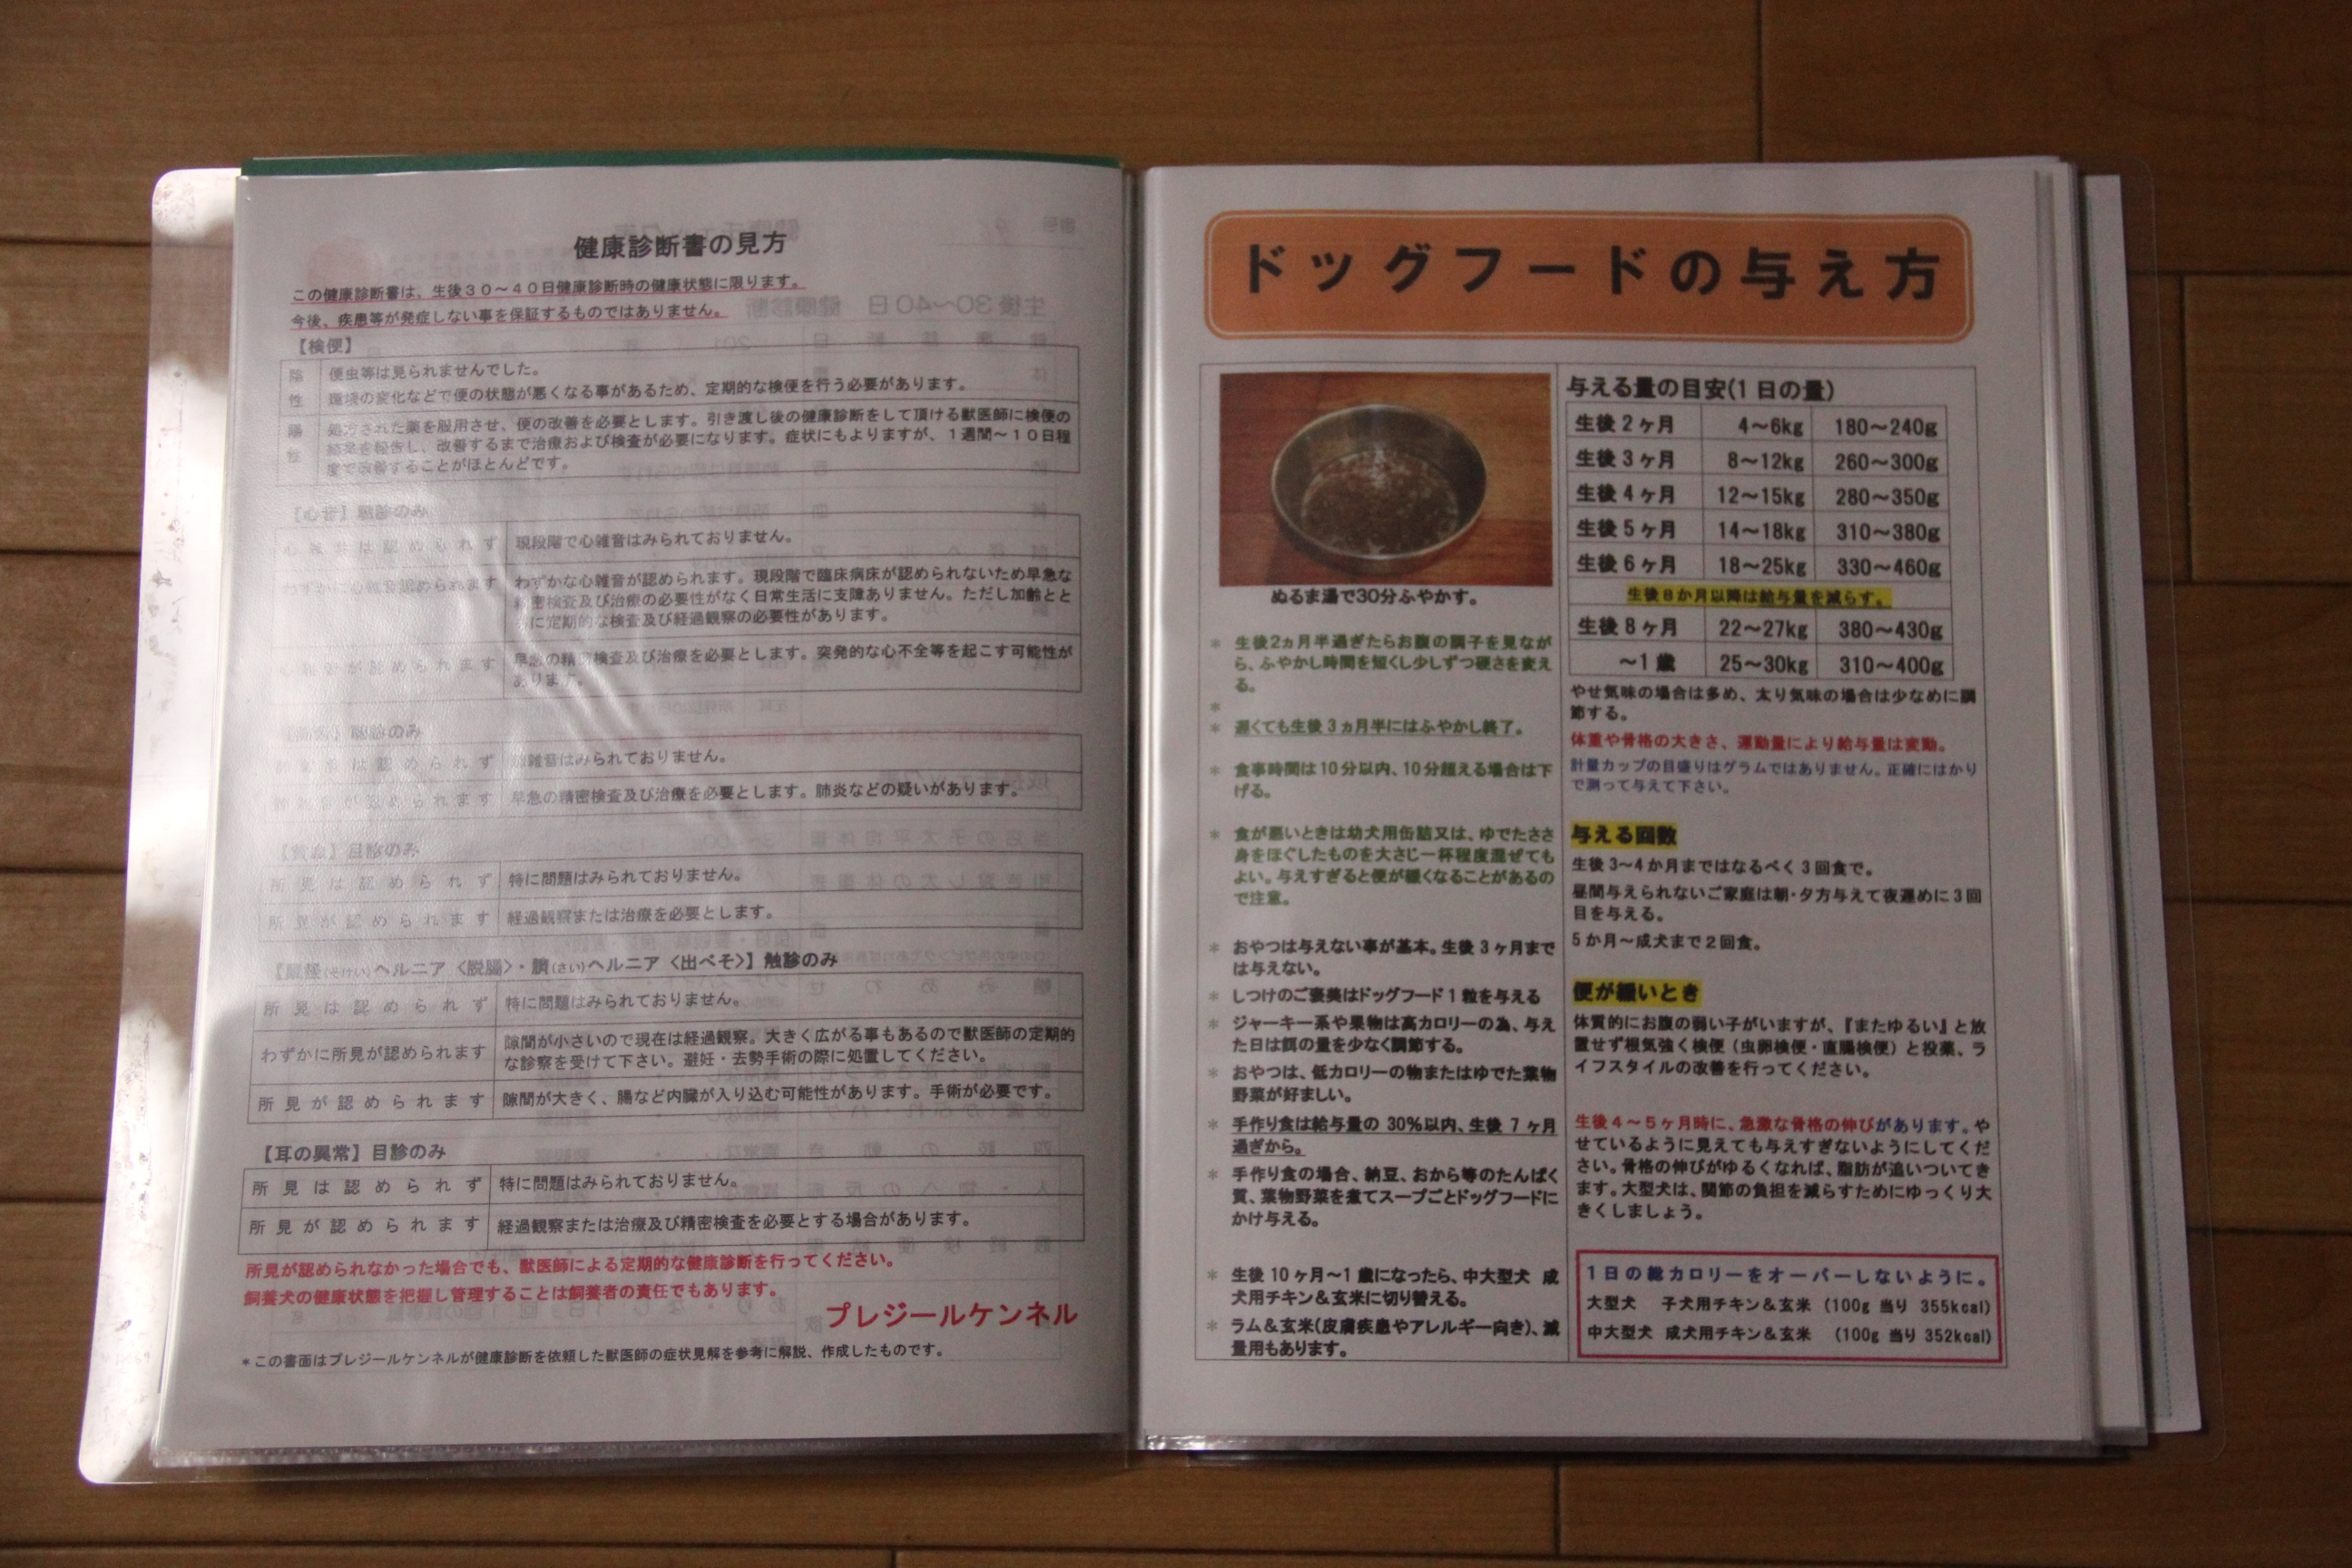 健康診断書の見方
この健康診断書は、生後３０～４０日健康診断時の健康状態に限ります。
今後、疾患等が発症しない事を保証するものではありません。
【検便】
陰性 便虫等は見られませんでした。
環境の変化などで便の状態が悪くなる事があるため、定期的な検便を行う必要があります。
陽性 処方された薬を服用させ、便の改善を必要とします。引き渡し後の健康診断をして頂ける獣医師に検便の
結果を報告し、改善するまで治療および検査が必要になります。症状にもよりますが、１週間～１０日程
度で改善することがほとんどです。
【心音】聴診のみ
心雑音は認められず 現段階で心雑音はみられておりません。
わずかに心雑音認められます わずかな心雑音が認められます。現段階で臨床病床が認められないため早急な
精密検査及び治療の必要性がなく日常生活に支障ありません。ただし加齢とと
もに定期的な検査及び経過観察の必要性があります。
心雑音が認められます 早急の精密検査及び治療を必要とします。突発的な心不全等を起こす可能性が
あります。
聴診のみ
肺雑音は認められず 肺雑音はみられておりません。
肺雑音が認められます 早急の精密検査及び治療を必要とします。肺炎などの疑いがあります。
目診のみ
所見は認められず 特に問題はみられておりません。
所見が認められます 経過観察または治療を必要とします。
【鼠径(そけい)ヘルニア〈脱腸〉・臍(さい)ヘルニア〈出べそ〉】触診のみ
所見は認められず 特に問題はみられておりません。
わずかに所見が認められます 隙間が小さいので現在は経過観察。大きく広がる事もあるので獣医師の定期的
な診察を受けて下さい。避妊・去勢手術の際に処置してください。
所見が認められます 隙間が大きく、腸など内臓が入り込む可能性があります。手術が必要です。
【耳の異常】目診のみ
所見は認められず 特に問題はみられておりません。
所見が認められます 経過観察または治療及び精密検査を必要とする場合があります。
所見が認められなかった場合でも、獣医師による定期的な健康診断を行ってください。
飼養犬の健康状態を把握し管理することは飼養者の責任でもあります。
プレジールケンネル
＊この書面はプレジールケンネルが健康診断を依頼した獣医師の症状見解を参考に解説、作成したものです。
ドッグフードの与え方
ぬるま湯で30分ふやかす。
＊ 生後2ヵ月半過ぎたらお腹の調子を見なが
ら、ふやかし時間を短くし少しずつ硬さを変え
る。
＊
＊ 遅くても生後３ヵ月半にはふやかし終了。
＊ 食事時間は10分以内、10分超える場合は下
げる。
＊ 食が悪いときは幼犬用缶詰又は、ゆでたささ
身をほぐしたものを大さじ一杯程度混ぜても
よい。与えすぎると便が緩くなることがあるの
で注意。
＊ おやつは与えない事が基本。生後３ヶ月まで
は与えない。
＊ しつけのご褒美はドッグフード１粒を与える
＊ ジャーキー系や果物は高カロリーの為、与え
た日は餌の量を少なく調節する。
＊ おやつは、低カロリーの物またはゆでた葉物
野菜が好ましい。
＊ 手作り食は給与量の 30%以内、生後７ヶ月
過ぎから。
＊ 手作り食の場合、納豆、おから等のたんぱく
質、葉物野菜を煮てスープごとドッグフードに
かけ与える。
＊ 生後10ヶ月～１歳になったら、中大型犬 成
犬用チキン＆玄米に切り替える。
＊ ラム＆玄米(皮膚疾患やアレルギー向き)、減
量用もあります。
与える量の目安(１日の量)
生後２ヶ月 4～6kg 180～240g
生後３ヶ月 8～12kg 260～300g
生後４ヶ月 12～15kg 280～350g
生後５ヶ月 14～18kg 310～380g
生後６ヶ月 18～25kg 330～460g
生後８か月以降は給与量を減らす。
生後８ヶ月 22～27kg 380～430g
～１歳 25～30kg 310～400g
やせ気味の場合は多め、太り気味の場合は少なめに調
節する。
体重や骨格の大きさ、運動量により給与量は変動。
計量カップの目盛りはグラムではありません。正確にはかり
で測って与えて下さい。
与える回数
生後３～４か月まではなるべく３回食で。
昼間与えられないご家庭は朝・夕方与えて夜遅めに３回
目を与える。
５か月～成犬まで２回食。
便が緩いとき
体質的にお腹の弱い子がいますが、『またゆるい』と放
置せず根気強く検便（虫卵検便・直腸検便）と投薬、ラ
イフスタイルの改善を行ってください。
生後４～５ヶ月時に、急激な骨格の伸びがあります。や
せているように見えても与えすぎないようにしてくだ
さい。骨格の伸びがゆるくなれば、脂肪が追いついてき
ます。大型犬は、関節の負担を減らすためにゆっくり大
きくしましょう。
１日の総カロリーをオーバーしないように。
大型犬 子犬用チキン＆玄米 （100g 当り 355kcal)
中大型犬 成犬用チキン＆玄米 （100g 当り 352kcal)